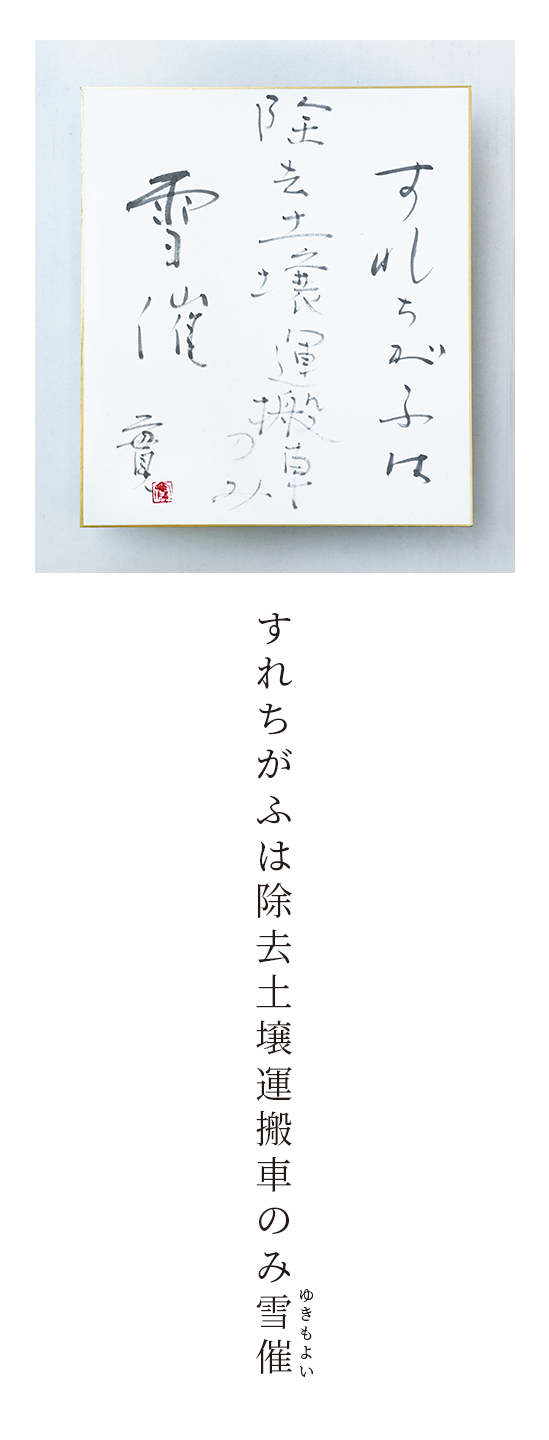 すれちがふは
除去土壌運搬車
のみ
雪催
實
すれちがふは除去土壌運搬車のみ雪催
ゆきもよい